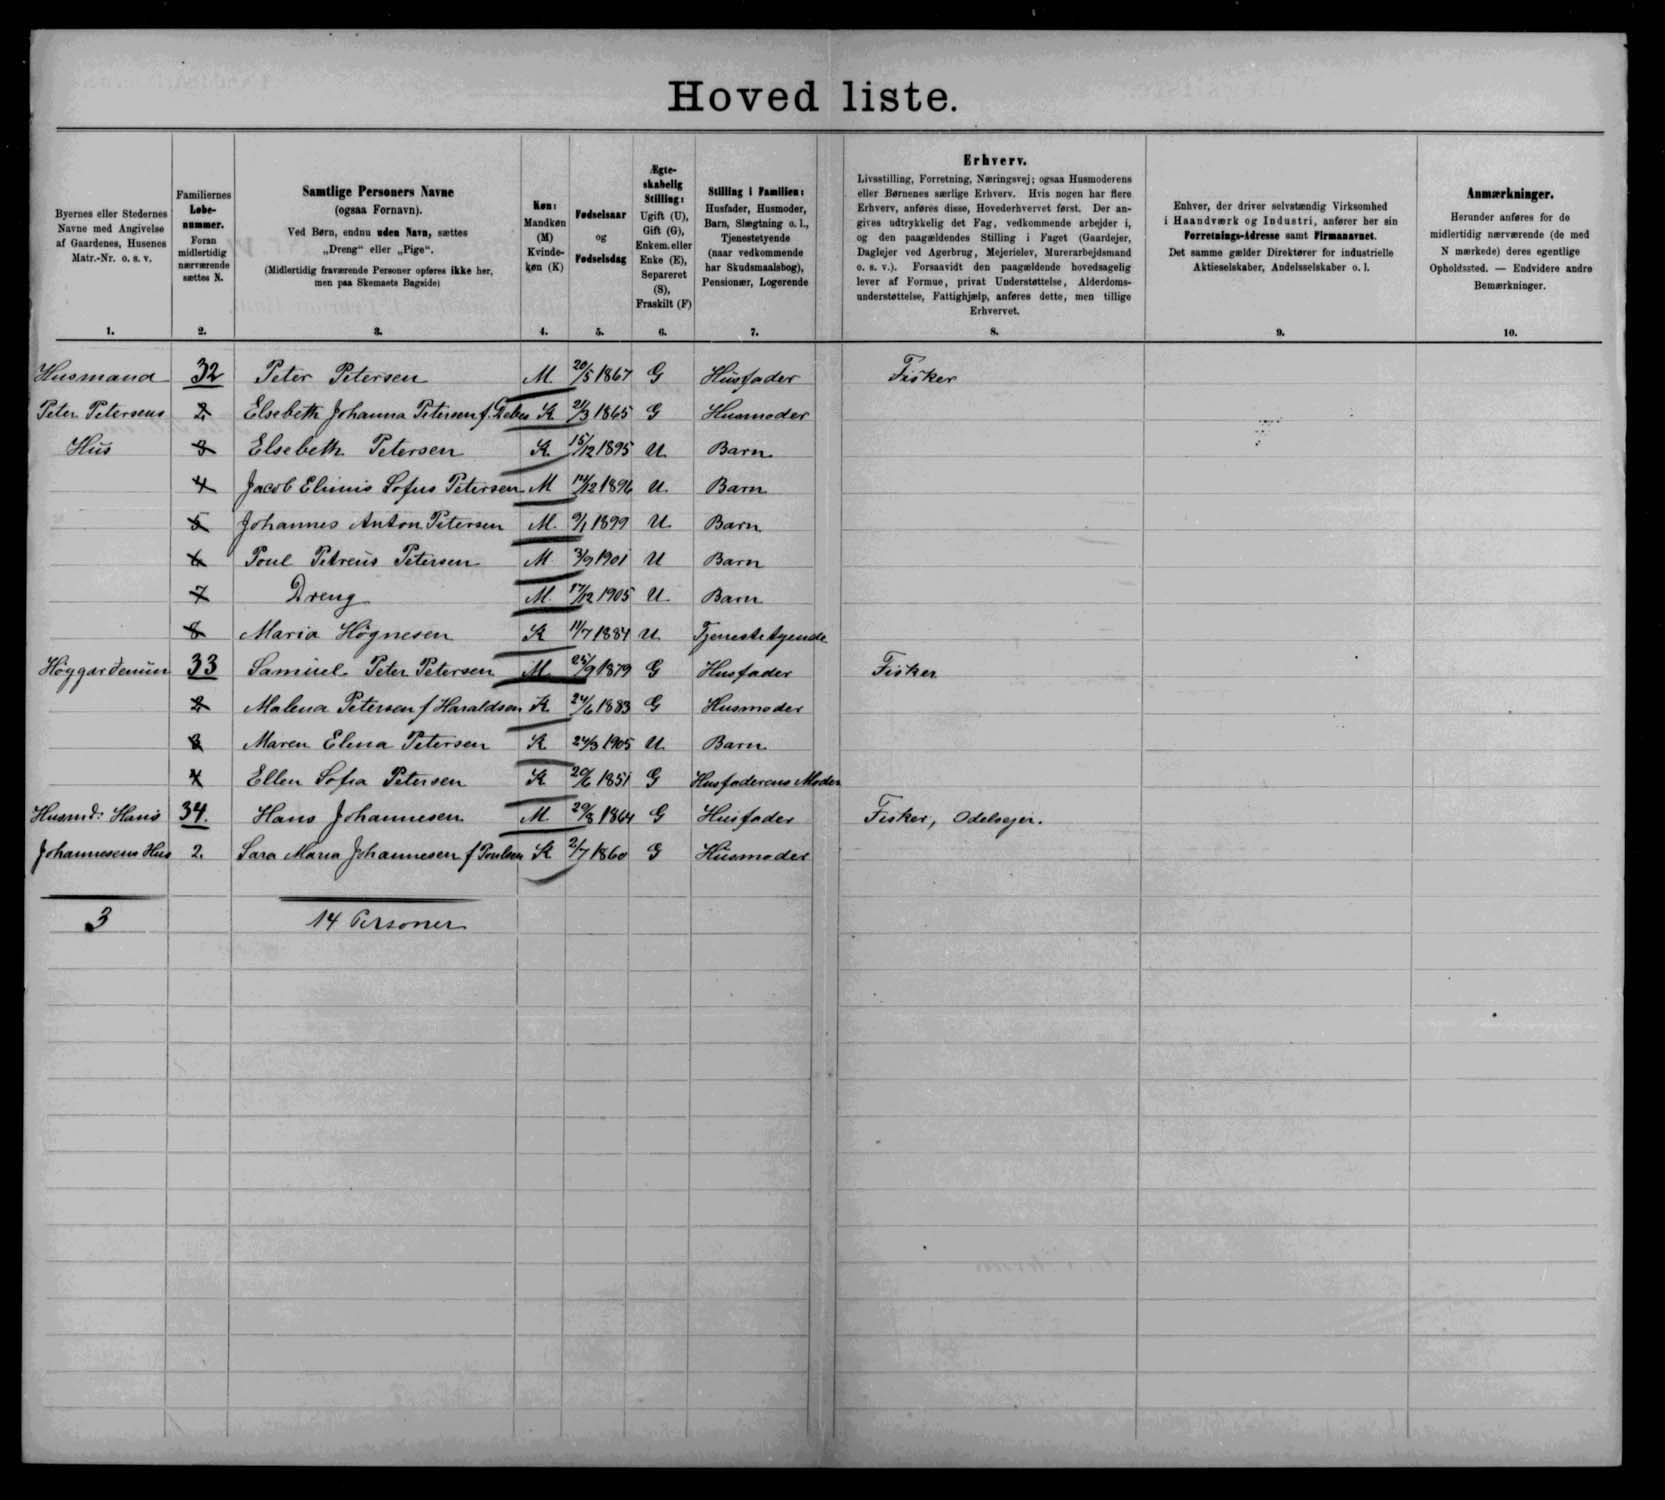 Hoved liste.
Byernes eller Stedernes
Navne med Angivelse
af Gaardenes, Husenes
Matr.-Nr. o. s. v.
1.
Familiernes
Løbe-
nummer.
Foran
midlertidig
nærværende
sættes N.
2.
Samtlige Personers Navne
(ogsaa Fornavn).
Ved Børn, endnu uden Navn, sættes
„Dreng" eller „Pige".
(Midlertidig fraværende Personer opføres ikke her,
men paa Skemaets Bagside)
3.
Køn:
Mandkøn
(M)
Kvinde-
køn (K)
4.
Fødselsaar
og
Fødselsdag
5.
Ægte-
skabelig
Stilling:
Ugift (U),
Gift (G),
Enkem. eller
Enke (E),
Separeret
(S),
Fraskilt (F)
6.
Stilling i Familien:
Husfader, Husmoder,
Barn, Slægtning o. l.,
Tjenestetyende
(naar vedkommende
har Skudsmaalsbog),
Pensionær, Logerende
7.
Erhverv.
Livsstilling, Forretning, Næringsvej; ogsaa Husmoderens
eller Børnenes særlige Erhverv. Hvis nogen har flere
Erhverv, anføres disse, Hovederhvervet først. Der an-
gives udtrykkelig det Fag, vedkommende arbejder i,
og den paagældendes Stilling i Faget (Gaardejer,
Daglejer ved Agerbrug, Mejerielev, Murerarbejdsmand
o. s. v.). Forsaavidt den paagældende hovedsagelig
lever af Formue, privat Understøttelse, Alderdoms-
understøttelse, Fattighjælp, anføres dette, men tillige
Erhvervet.
8.
Enhver, der driver selvstændig Virksomhed
i Haandværk og Industri, anfører her sin
Forretnings-Adresse samt Firmanavnet.
Det samme gælder Direktører for industrielle
Aktieselskaber, Andelsselskaber o. l.
9.
Anmærkninger.
Herunder anføres for de
midlertidig nærværende (de med
N mærkede) deres egentlige
Opholdssted. — Endvidere andre
Bemærkninger.
10.
Husmand 32 Peter Petersen M. 20/5 1867 G Husfader Fisker
Peter Petersens 2 Elsebeth Johanna Petersen f. K 21/3 1865 G Husmoder
Hus 3 Elsebeth Petersen K. 15/12 1895 U. Barn
4 Jacob Sofus Petersen M 14/12 1896 U. Barn
5 Johannes Anton Petersen M. 9/1 1899 U. Barn
6 Poul Petreus Petersen M. 3/9 1901 U Barn
7 Dreng M. 17/12 1905 U. Barn
8 Maria Høgnesen K 11/7 1884 U. Tjenestetyende
33 Samuel Peter Petersen M. 25/9 1879 G Husfader Fisker
2 Malena Petersen f Haraldsen K. 24/6 1883 G Husmoder
3 Maren Elena Petersen K. 24/3 1905 U. Barn
4 Ellen Sofia Petersen K 20/6 1851 G Husfaderens Moder
Husmd: Hans 34. Hans Johannesen M. 29/8 1864 G Husfader Fisker, Odelsejer.
Johannesens Hus 2. Sara Maria Johannesen f Poulsen K 2/7 1860 G Husmoder
3 14 Personer